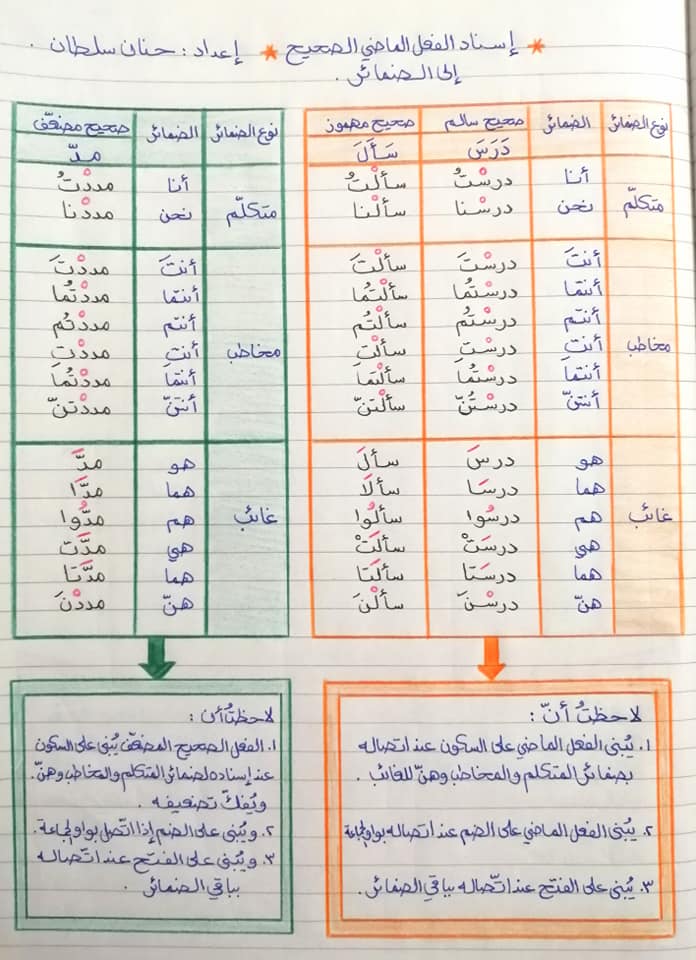 * إسناد الفعل الماضي الصحيح * إعداد : حنان سلطان .
إلى الضمائر .
نوع الضمائر الضمائر صحيح سالم صحيح مهموز
دَرَسَ سَأَلَ
متكلّم
أنا درسْتُ سألْتُ
نحن درسْنا سألْنا
مخاطب
أنتَ درسْتَ سألْتَ
أنتما درسْتُما سألْتُما
أنتم درسْتُم سألْتُم
أنتِ درسْتِ سألْتِ
أنتما درسْتُما سألْتُما
أنتنّ درسْتُنّ سألْتنّ
غائب
هو درسَ سألَ
هما درسَا سألَا
هم درسُوا سألُوا
هي درسَتْ سألَتْ
هما درسَتا سألَتا
هنّ درسْنَ سألْنَ
لاحظتُ أنّ :
١. يُبنى الفعل الماضي على السكون عند اتصاله
بضمائر المتكلم والمخاطب وهنّ للغائب .
٢. يُبنى الفعل الماضي على الضم عند اتصاله بواو الجماعة
٣. يُبنى على الفتح عند اتّصاله بباقي الضمائر .
نوع الضمائر الضمائر صحيح مضعّف
مدّ
متكلّم
أنا مددْتُ
نحن مددْنا
مخاطب
أنتَ مددْتَ
أنتما مددْتُما
أنتم مددْتُم
أنتِ مددْتِ
أنتما مددْتُما
أنتنّ مددْتنّ
غائب
هو مدَّ
هما مدَّا
هم مدُّوا
هي مدَّت
هما مدَّتا
هنّ مددْنَ
لاحظتُ أن :
١. الفعل الصحيح المضعّف يُبنى على السكون
عند إسناده لضمائر المتكلم والمخاطب وهنّ .
ويُفكّ تضعيفه .
٢. ويُبنى على الضم إذا اتّصل بواو الجماعة .
٣. ويُبنى على الفتح عند اتّصاله
بباقي الضمائر .